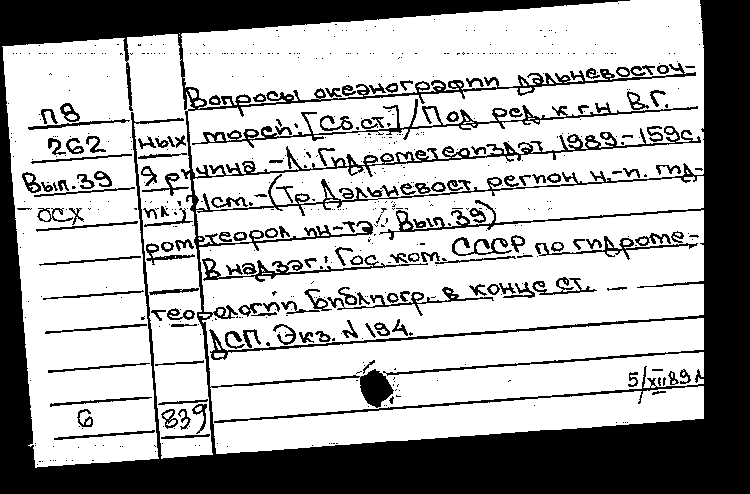 Вопросы океанографии дальневосточ-
П8
262 ных морей: [Сб.ст.] / Под ред. к.г.н. В.Г.
Вып.39 Яричина. - Л.: Гидрометеоиздат, 1989. - 159с.,
ОСХ ил.; 21 cm. - (Тр. Дальневост. регион. н.-и. гид-
рометеорол. ин-та; Вып. 39)
В надзаг.: Гос. ком. СССР по гидроме-
теорологии. Библиогр. в конце ст.
ДСП. Экз. N 194.
5/XII89
6 839